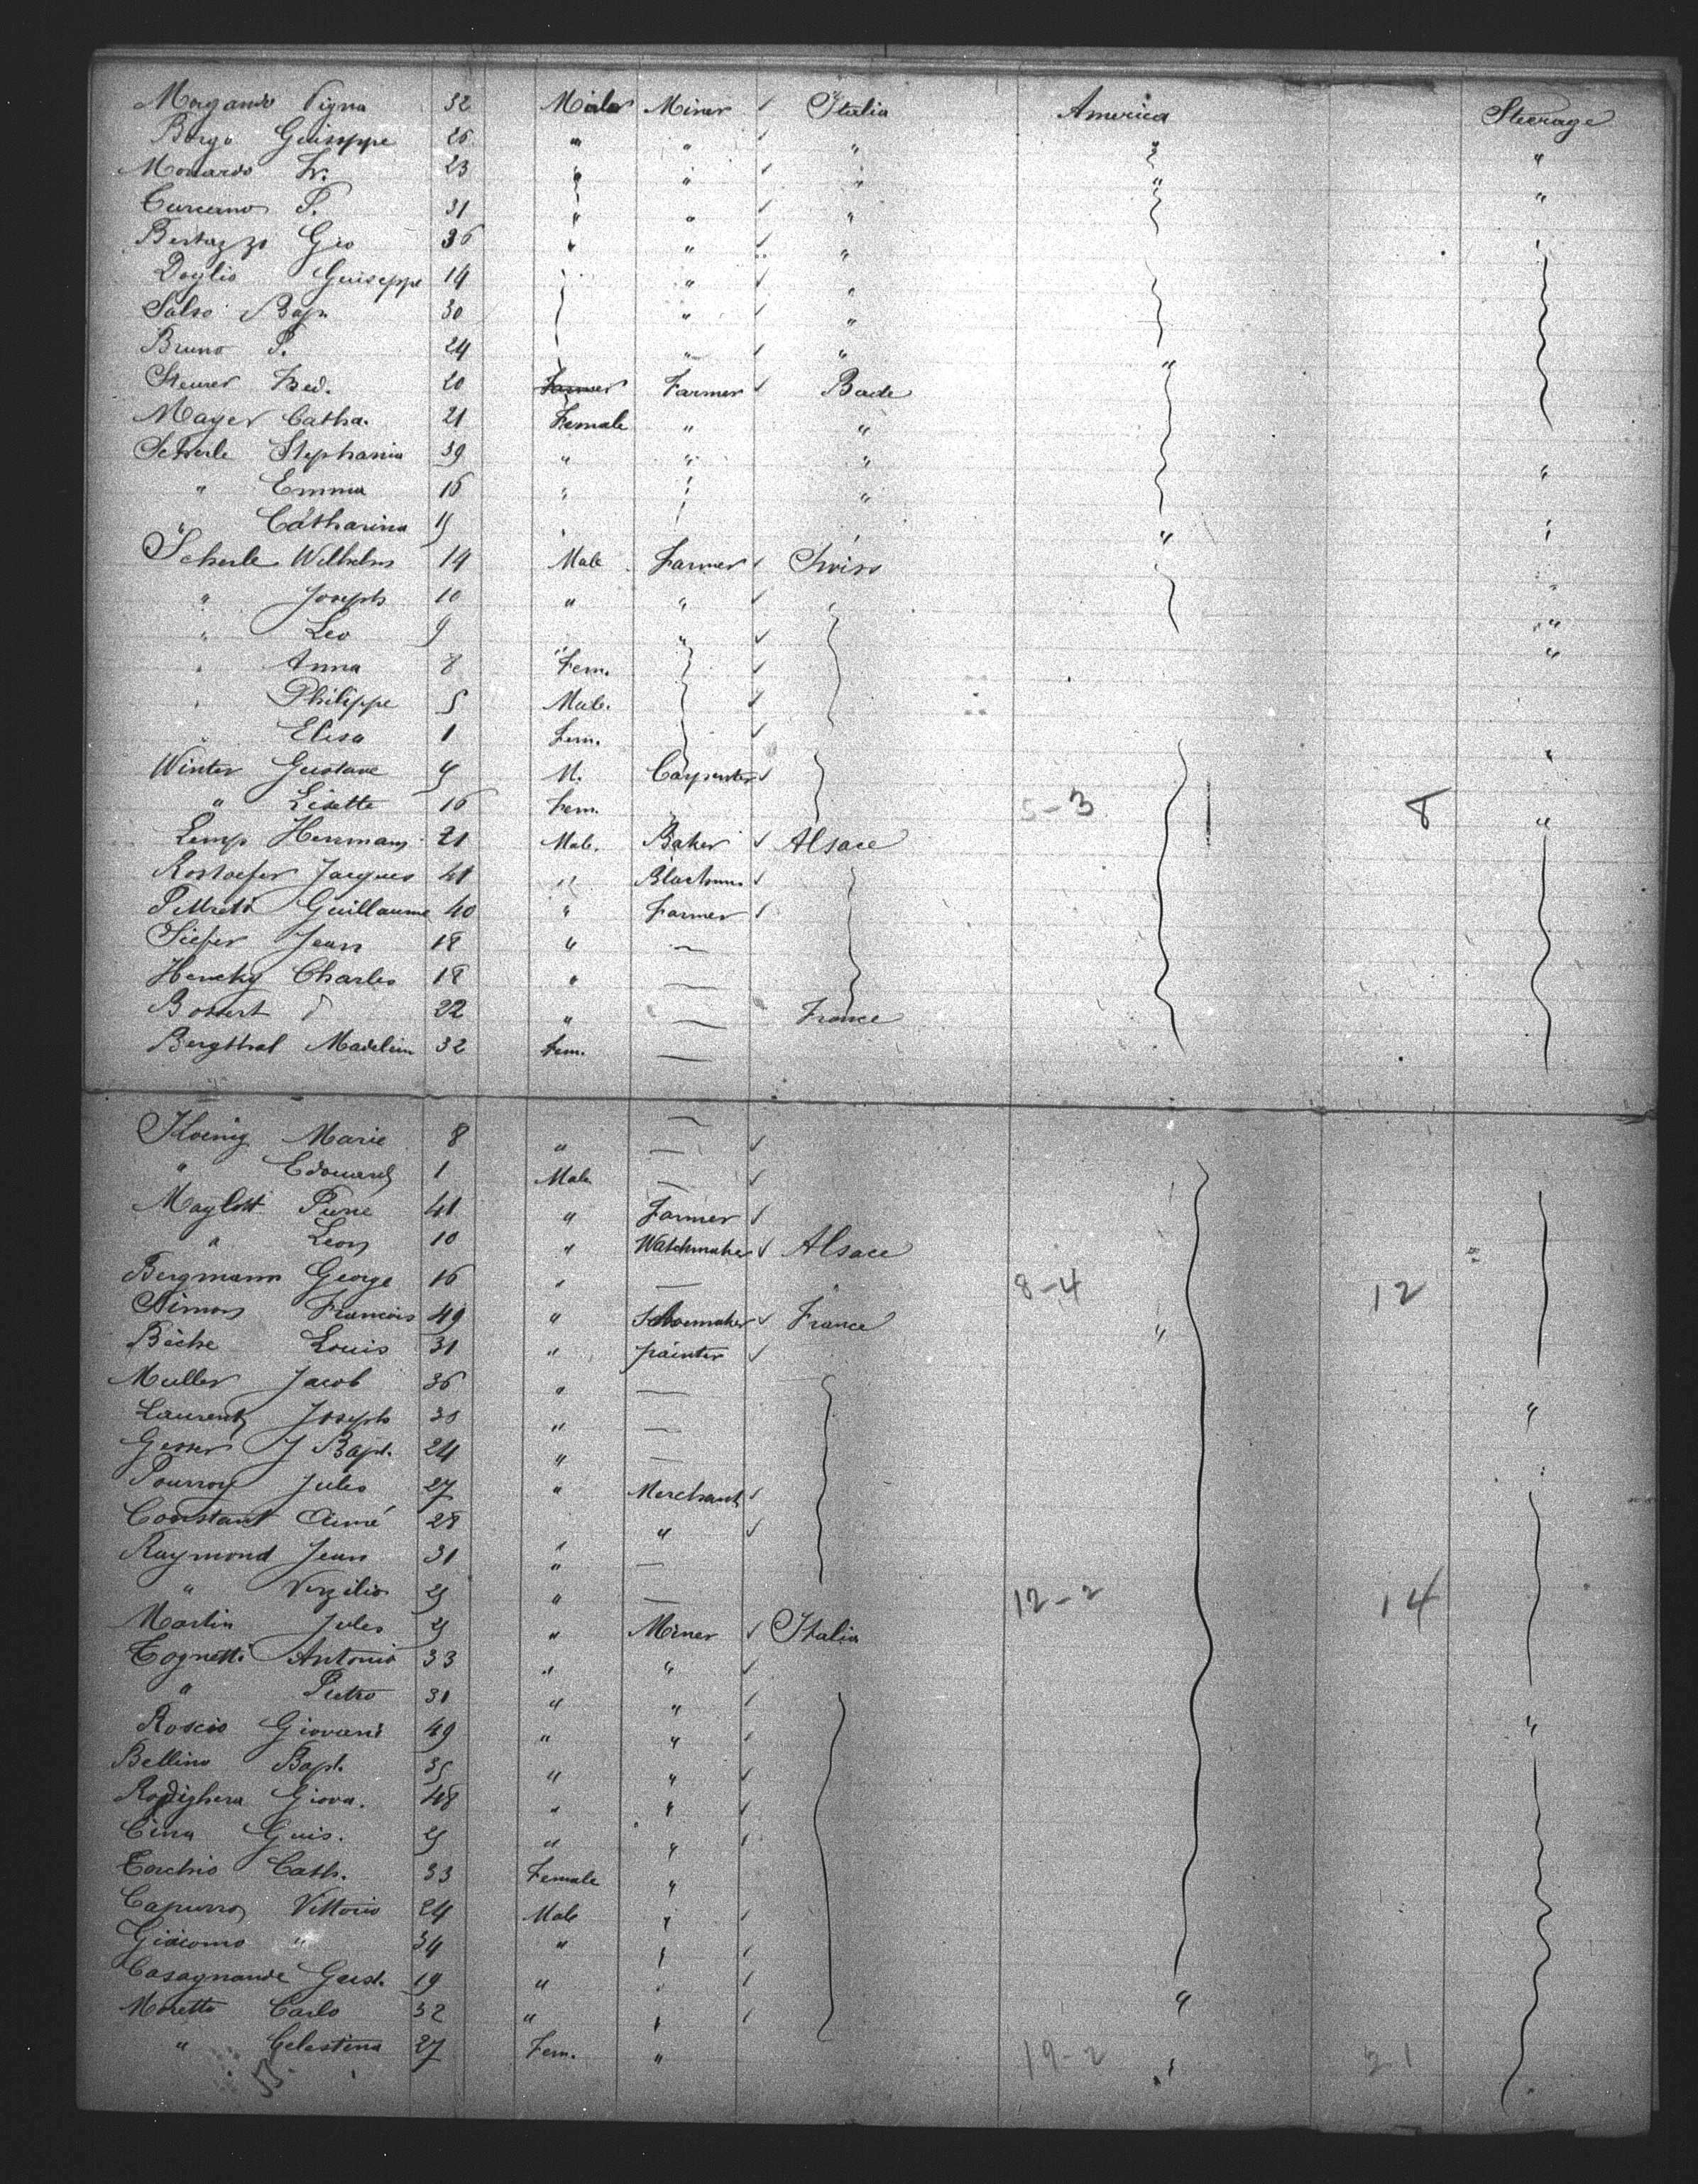 Morgando Vigna 32 Male Miner ✓ Italia America Steerage
Borgo Guiseppe 26 " " ✓ " " "
Monardo Fr. 23 " " ✓ " " "
Curcerno P. 31 " " ✓ "
Bertazzo Gio 36 " " ✓ "
Doglio Guiseppe 14 " ✓ "
Salso Bap. 30 " ✓ "
Bruno P. 24 " ✓ " "
Steurer Fred. 20 Farmer Farmer ✓ Bade
Mayer Catha. 21 Female " "
Scherle Stephania 39 " " " "
" Emma 16 " "
" Catharina 15 "
Scherle Wilhelm 14 Male Farmer ✓ Swiss
" Joseph 10 " " ✓
" Leo 9 " ✓ "
" Anna 8 Fem. ✓ "
" Philippe 5 Male. ✓
" Elisa 1 Fem. ✓
Winter Gustave 4 M. Carpenter ✓
" Lisette 16 Fem. 5-3 8 "
Lemp Hermann 21 Male. Baker ✓ Alsace
Rostaefer Jacques 41 " Blacksm. ✓
Guillaume 40 " Farmer ✓
Siefer Jean 18 " —
Hencky Charles 18 " —
Bossert J 22 " — France
Bergthal Madelein 32 Fem. —
Koenig Marie 8 " — ✓
" Edouard 1 Male — ✓
Maylott Pierre 41 " Farmer ✓
" Leon 10 " Watchmaker ✓ Alsace
Bergmann George 16 " — 8-4 12
Simon Francois 49 " Shoemaker ✓ France "
Bêche Louis 31 " painter ✓
Muller Jacob 36 " —
Laurent Joseph 30 " — "
Gesser J Bapt. 24 " —
Pourroy Jules 27 " Merchant ✓
Constant Aimé 28 " ✓
Raymond Jean 31 " —
" Virzilio 25 " — 12-2 14
Martin Jules 25 " Miner ✓ Italia
Cognetti Antonio 33 " " ✓
" Pietro 31 " " ✓
Roscio Giovani 49 " " ✓ "
Bellino Bapt. 35 " " ✓
Rodighera Giova. 48 " " ✓
Cina Guis. 25 " " ✓
Torchio Cath. 33 Female "
Capurro Vittorio 24 Male " ✓
Giacomo " 34 " " ✓
Casagnande Gust. 19 " " ✓
Moretto Carlo 32 " " ✓ "
" Celestina 27 Fem. " 19-2 21
55